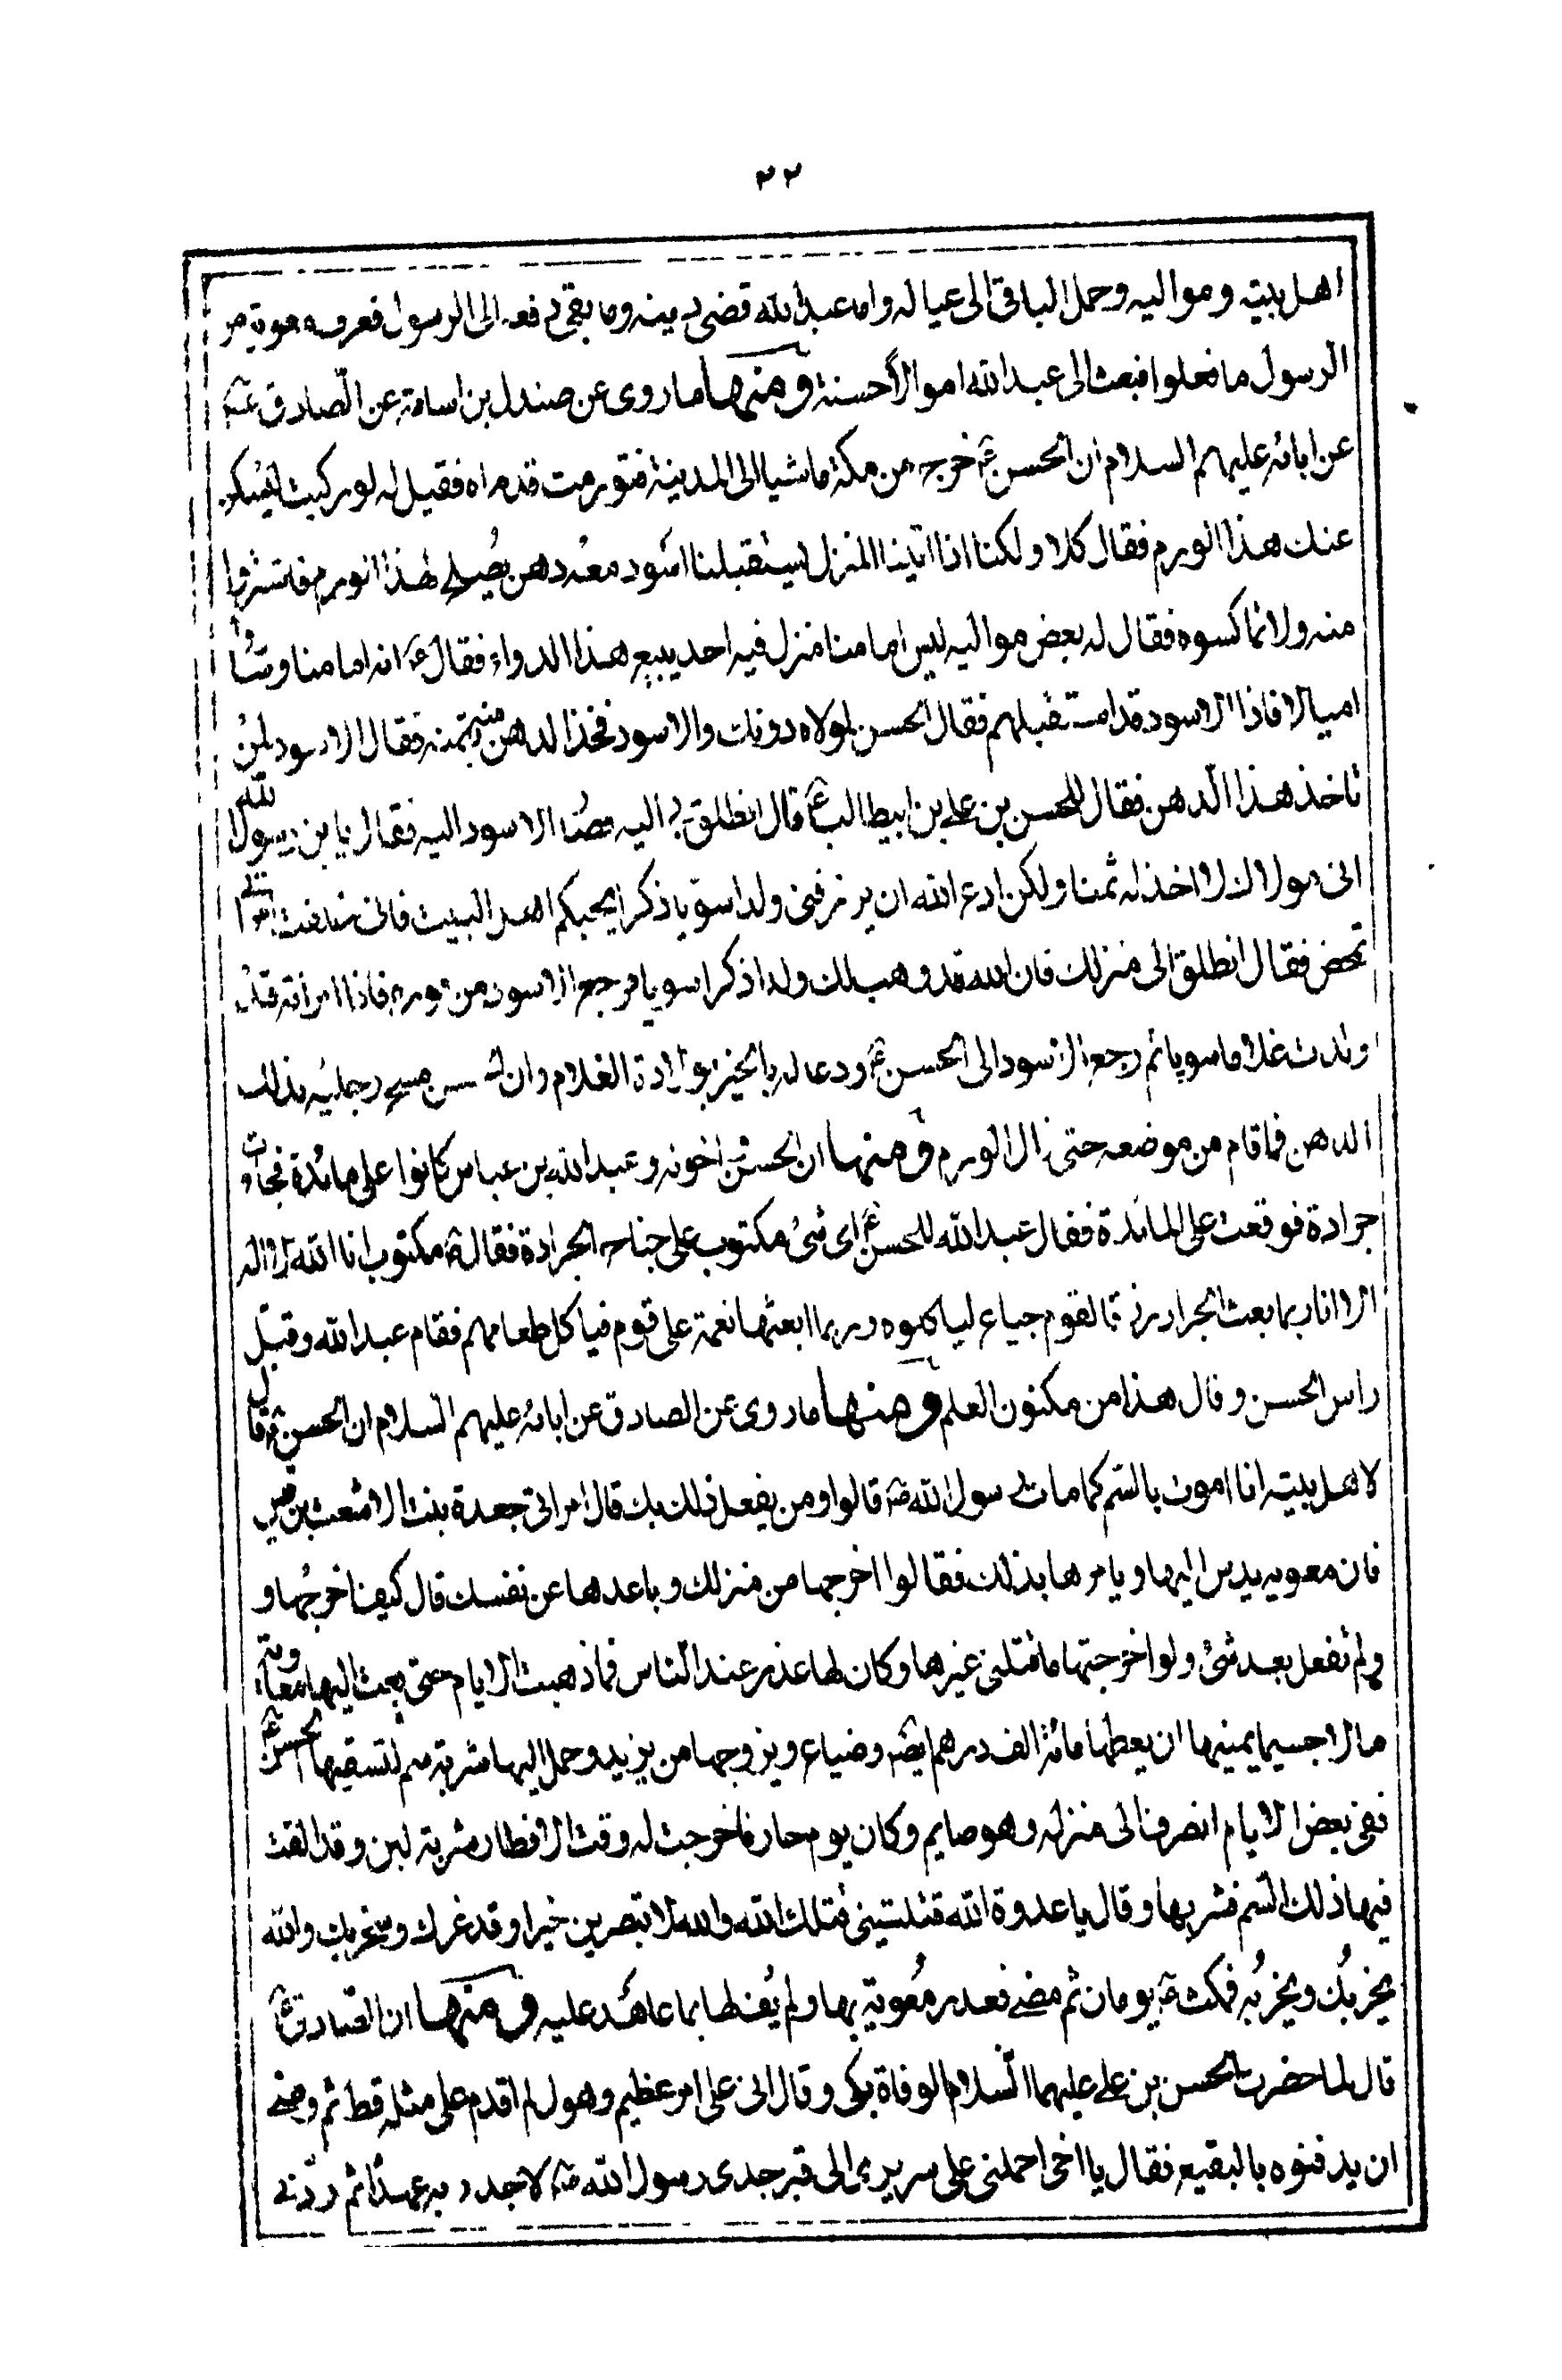 ٢٢
اهل بيته ومواليه وحمل الباقى الى عياله واما عبدالله قضى دينه وما بقى دفعه الى الرسول فعرف معوية من
الرسول ما فعلوا فبعث الى عبدالله اموالا حسنة ومنها ما روى عن صندل بن اسامة عن الصادق ع
عن ابائه عليهم السلام ان الحسن ع خرج من مكة ماشيا الى المدينة فتورمت قدماه فقيل له لو ركبت ليسكن
عنك هذا الورم فقال كلا ولكنا اذا اتينا المنزل يستقبلنا اسود معه دهن يصلح لهذا الورم فاشتروا
منه ولا تماكسوه فقال له بعض مواليه ليس امامنا منزل فيه احد يبيع هذا الدواء فقال ع انه امامنا وساروا
اميالا فاذا الاسود قد استقبلهم فقال الحسن لمولاه دونك والاسود فخذ الدهن منه بثمنه فقال الاسود لمن
تاخذ هذا الدهن فقال للحسن بن على بن ابيطالب ع قال انطلق بى اليه فصار الاسود اليه فقال يا بن رسول الله
انى مولاك لا اخذ له ثمنا ولكن ادع الله ان يرزقنى ولدا سويا ذكرا يحبكم اهل البيت فانى خلفت امراتى
تمخض فقال انطلق الى منزلك فان الله قد وهب لك ولدا ذكرا سويا فرجع الاسود من فوره فاذا امراته قد
ولدت غلاما سويا ثم رجع الاسود الى الحسن ع ودعا له بالخير بولادة الغلام وان الحسن مسح رجليه بذلك
الدهن فما قام من موضعه حتى زال الورم ومنها ان الحسن ع و اخوته وعبدالله بن عباس كانوا على مائدة فجاءت
جرادة فوقعت على المائدة فقال عبدالله للحسن ع اى شئ مكتوب على جناح الجرادة فقال ع مكتوب انا الله لا اله
الا انا ربما بعث الجراد رزقا لقوم جياع لياكلوه وربما ابعثها نقمة على قوم فياكل طعامهم فقام عبدالله وقبل
راس الحسن وقال هذا من مكنون العلم ومنها ما روى عن الصادق عن ابائه عليهم السلام ان الحسن ع قال
لاهل بيته انا اموت بالسم كما مات رسول الله ص قالوا ومن يفعل ذلك بك قال امراتى جعدة بنت الاشعث بن قيس
فان معويه يدس اليها ويامرها بذلك فقالوا اخرجها من منزلك وباعدها عن نفسك قال كيف اخرجها و
ولم تفعل بعد شئ ولو اخرجتها ما قتلنى غيرها وكان لها عذر عند الناس فما ذهبت الايام حتى بعث اليها معاوية
مالا جسيما يمنيها ان يعطيها مائة الف درهم ايضا وضياع ويزوجها من يزيد وحمل اليها شربة سم لتسقيها الحسن ع
ففى بعض الايام انصرف الى منزله وهو صايم وكان يوم حار فاخرجت له وقت الافطار شربة لبن وقد القت
فيها ذلك السم فشربها وقال يا عدوة الله قتلتينى قتلك الله والله لا تبصرين خيرا وقد غرك وسخر بك والله
يخزيك ويخزيه فمكث ع يومان ثم مضى فغدر معوية بها ولم يف لها بما عاهد عليه ومنها ان الصادق ع
قال لما حضرت الحسن بن على عليهما السلام الوفاة بكى وقال انى على امر عظيم وهول لم اقدم على مثله قط ثم وصى
ان يدفنوه بالبقيع فقال يا اخى احملنى على سريرى الى قبر جدى رسول الله ص لاجدد به عهدا ثم ردنى